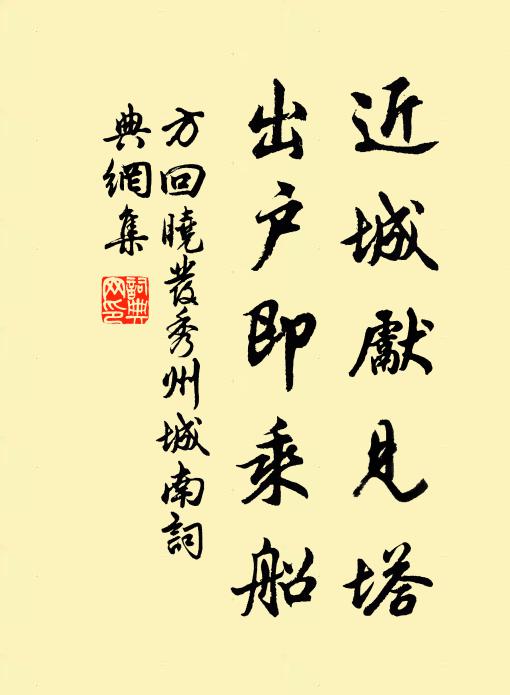 近城獻見塔
出户即乘船
方回曉發秀州城南詞
典網集
詞典
网印